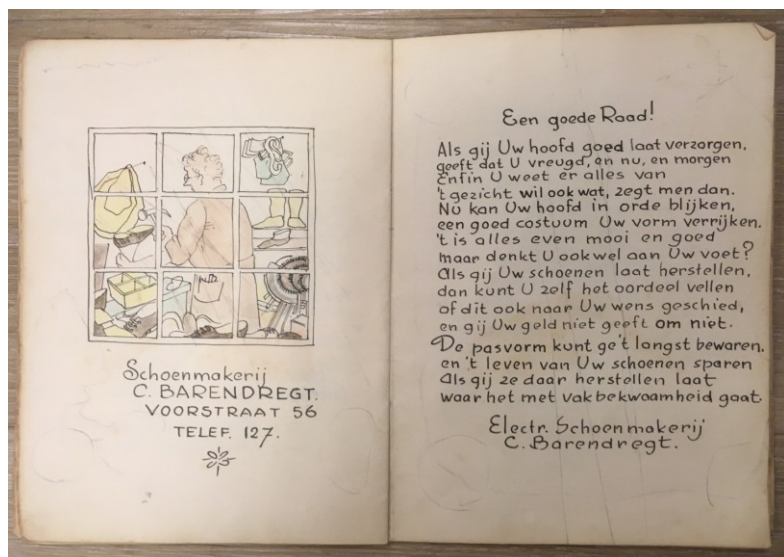 Schoenmakerij
C. BARENDREGT.
VOORSTRAAT 56
TELEF. 127.
Een goede Raad!
Als gij Uw hoofd goed laat verzorgen,
geeft dat U vreugd, en nu, en morgen
Enfin U weet er alles van
't gezicht wil ook wat, zegt men dan.
Nu kan Uw hoofd in orde blijken,
een goed costuum Uw vorm verrijken.
't is alles even mooi en goed
maar denkt U ook wel aan Uw voet?
Als gij Uw schoenen laat herstellen,
dan kunt U zelf het oordeel vellen
of dit ook naar Uw wens geschied,
en gij Uw geld niet geeft om niet.
De pasvorm kunt ge't langst bewaren.
en 't leven van Uw schoenen sparen
Als gij ze daar herstellen laat
waar het met vakbekwaamheid gaat.
Electr. Schoenmakerij
C. Barendregt.